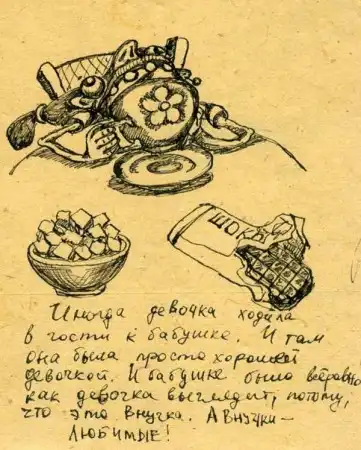 ШОКО
Иногда девочка ходила
в гости к бабушке. И там
она была просто хорошей
девочкой. И бабушке было всёравно
как девочка выглядит, потому,
что это внучка. А внучки –
ЛЮБИМЫЕ!